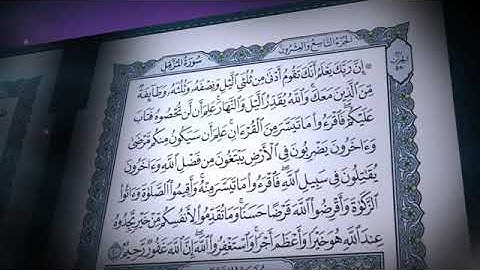 الجزء التاسع والعشرون سورة المزمل
۞ إِنَّ رَبَّكَ يَعْلَمُ أَنَّكَ تَقُومُ أَدْنَىٰ مِن ثُلُثَيِ ٱلَّيْلِ وَنِصْفَهُۥ وَثُلُثَهُۥ وَطَآئِفَةٌ
مِّنَ ٱلَّذِينَ مَعَكَۚ وَٱللَّهُ يُقَدِّرُ ٱلَّيْلَ وَٱلنَّهَارَۚ عَلِمَ أَن لَّن تُحْصُوهُ فَتَابَ
عَلَيْكُمْۖ فَٱقْرَءُوا۟ مَا تَيَسَّرَ مِنَ ٱلْقُرْءَانِۚ عَلِمَ أَن سَيَكُونُ مِنكُم مَّرْضَىٰ
وَءَاخَرُونَ يَضْرِبُونَ فِي ٱلْأَرْضِ يَبْتَغُونَ مِن فَضْلِ ٱللَّهِ وَءَاخَرُونَ
يُقَٰتِلُونَ فِي سَبِيلِ ٱللَّهِۖ فَٱقْرَءُوا۟ مَا تَيَسَّرَ مِنْهُۚ وَأَقِيمُوا۟ ٱلصَّلَوٰةَ وَءَاتُوا۟
ٱلزَّكَوٰةَ وَأَقْرِضُوا۟ ٱللَّهَ قَرْضًا حَسَنًاۚ وَمَا تُقَدِّمُوا۟ لِأَنفُسِكُم مِّنْ خَيْرٍ تَجِدُوهُ
عِندَ ٱللَّهِ هُوَ خَيْرًا وَأَعْظَمَ أَجْرًاۚ وَٱسْتَغْفِرُوا۟ ٱللَّهَۖ إِنَّ ٱللَّهَ غَفُورٌ رَّحِيمٌۢ ٢٠